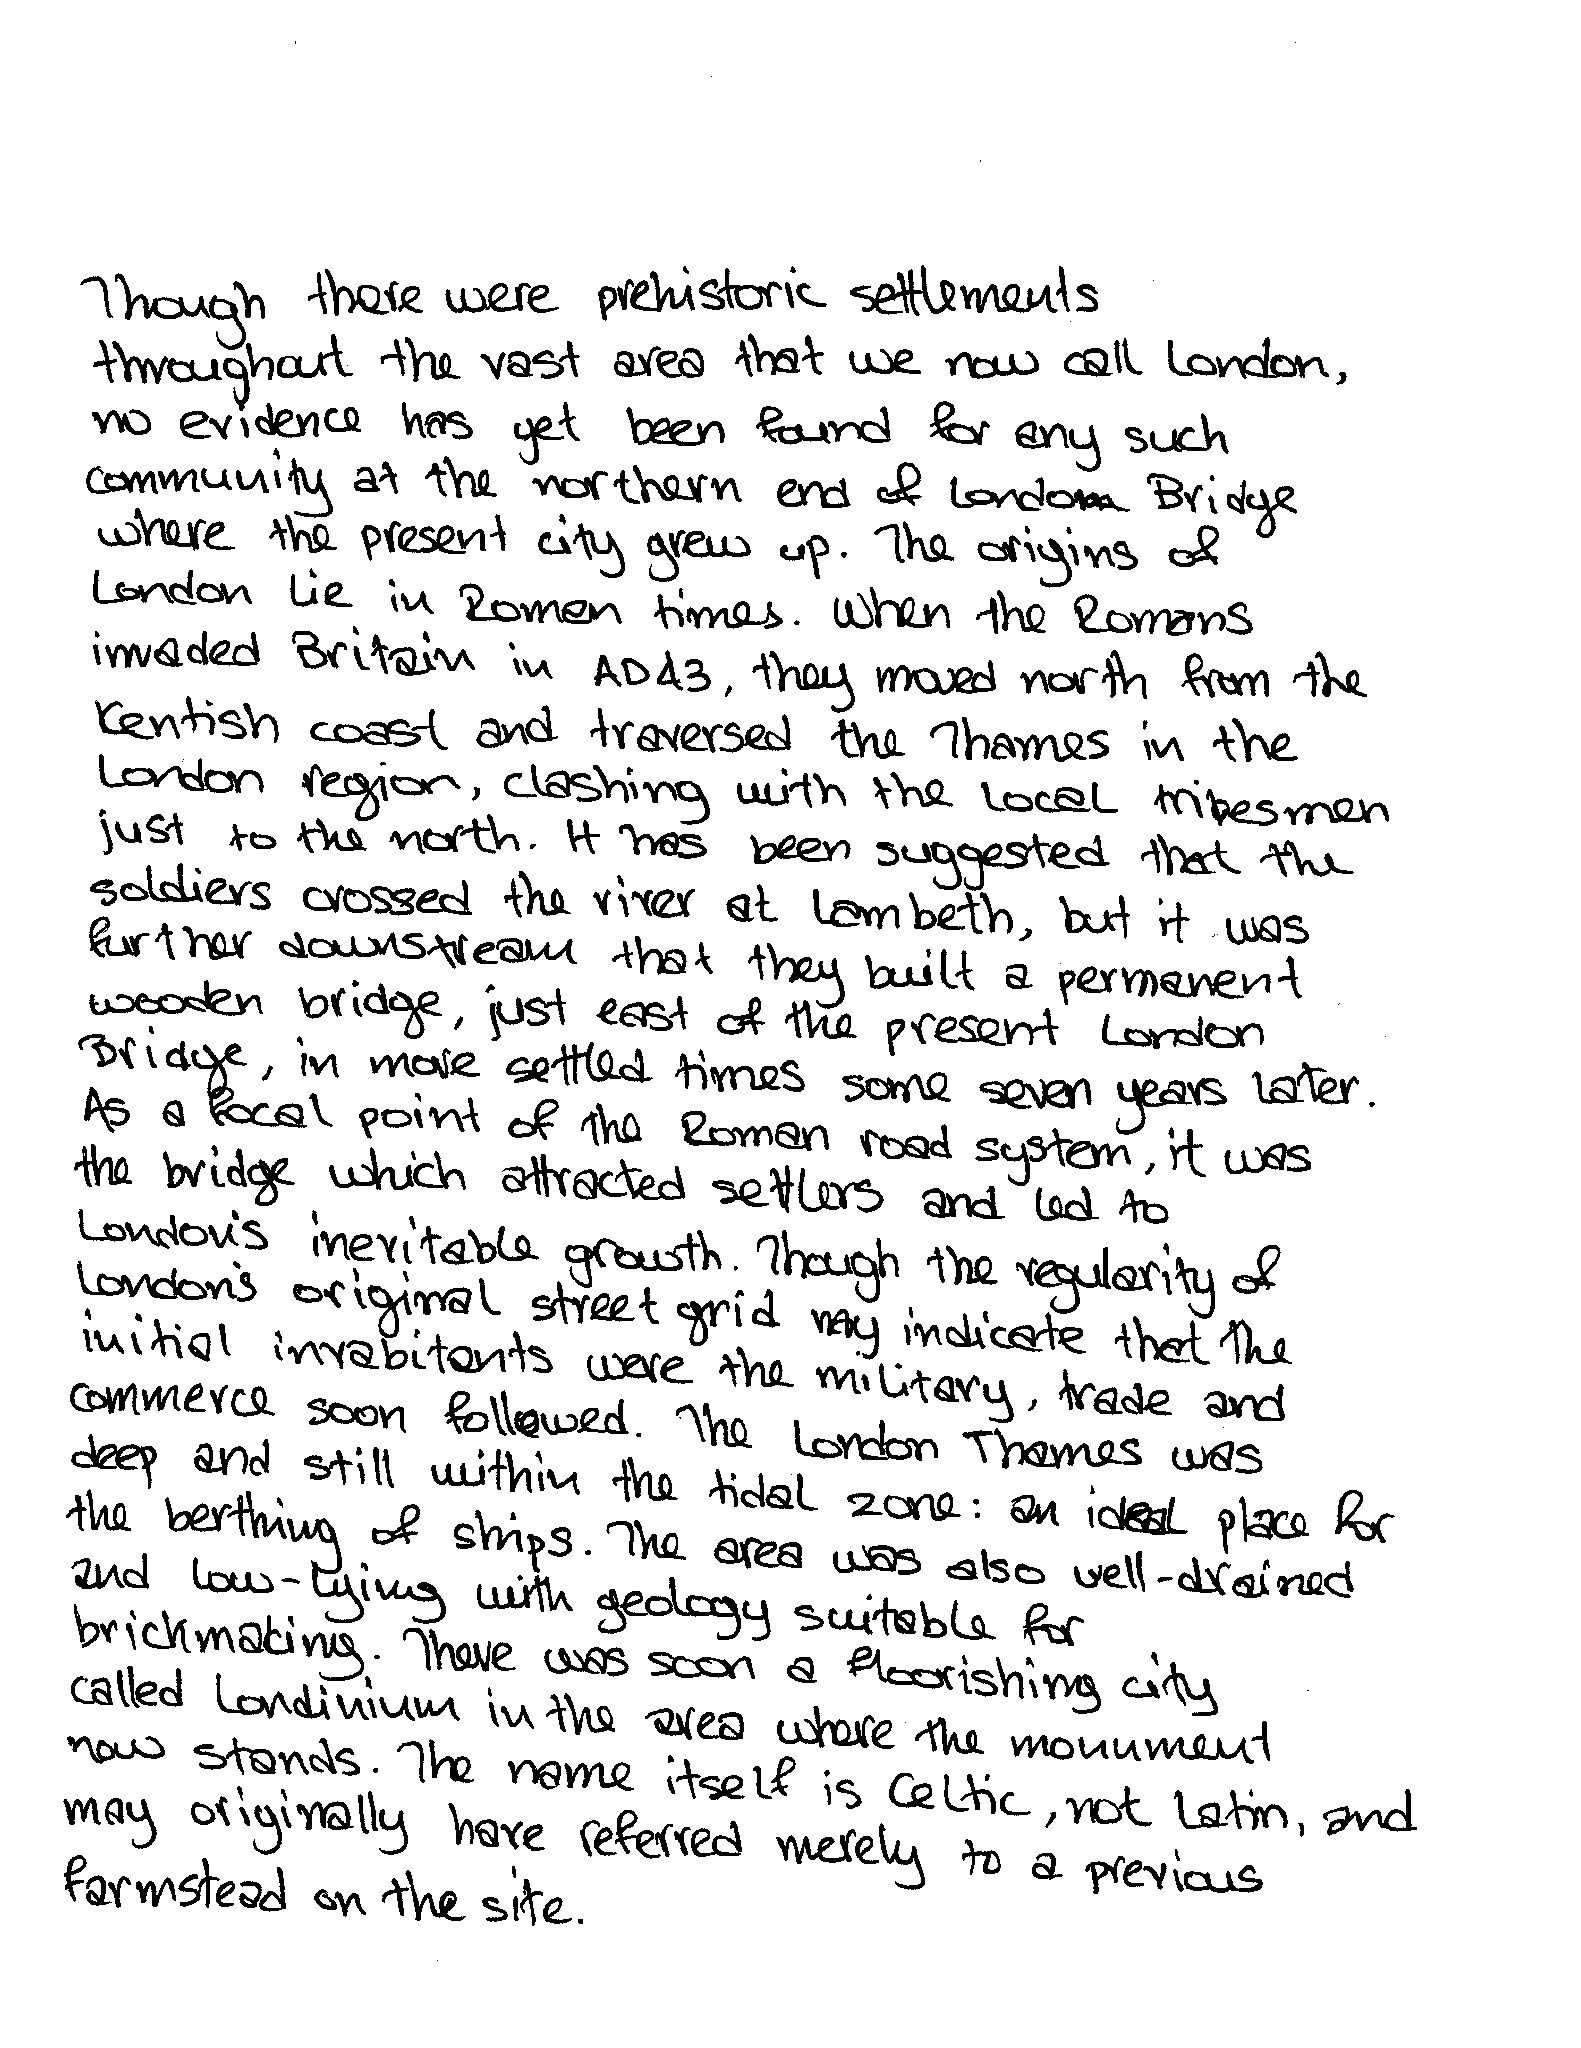 Though there were prehistoric settlements
throughout the vast area that we now call London,
no evidence has yet been found for any such
community at the northern end of London Bridge
where the present city grew up. The origins of
London lie in Roman times. When the Romans
invaded Britain in AD43, they moved north from the
Kentish coast and traversed the Thames in the
London region, clashing with the local tribesmen
just to the north. It has been suggested that the
soldiers crossed the river at Lambeth, but it was
further downstream that they built a permanent
wooden bridge, just east of the present London
Bridge, in more settled times some seven years later.
As a focal point of the Roman road system, it was
the bridge which attracted settlers and led to
London's inevitable growth. Though the regularity of
London's original street grid may indicate that the
initial invabitants were the military, trade and
commerce soon followed. The London Thames was
deep and still within the tidal zone: an ideal place for
the berthing of ships. The area was also well-drained
and low-lying with geology suitable for
brickmaking. There was soon a floorishing city
called Londinium in the area where the monument
now stands. The name itself is Celtic, not Latin, and
may originally have referred merely to a previous
farmstead on the site.